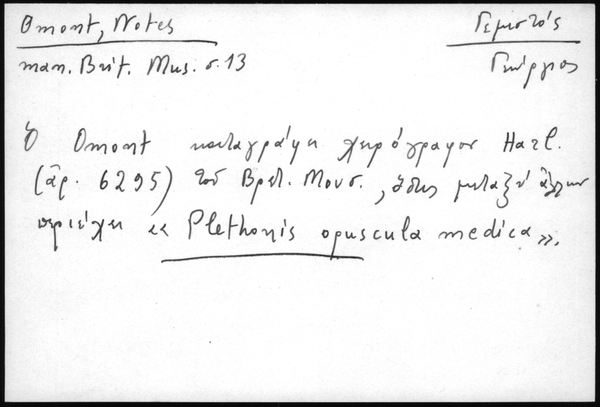 Omont, Notes
man. Brit. Mus. σ. 13
Γεμιστός
Γεώργιος
Ὁ Omont καταγράφει χειρόγραφον Harl.
(ἀρ. 6295) τοῦ Βρετ. Μουσ., ὅπερ μεταξὺ ἄλλων
περιέχει «Plethonis opuscula medica».